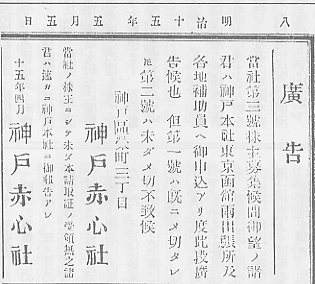 八 明治十五年五月五日
廣告
當社第三號株主募集候間御望ノ諸
君ハ神戸本社東京函館兩出張所及
各地補助員ヘ御申込アリ度此段廣
告候也 但第一號ハ既ニ〆切タレ
第二號ハ未ダ〆切不致候
神戸區榮町三丁目
神戸赤心社
當社ノ株主ニシテ未タ本請取証ノ受領無之諸
君ハ速カニ神戸本社ニ御報告アレ
十五年四月 神戸赤心社